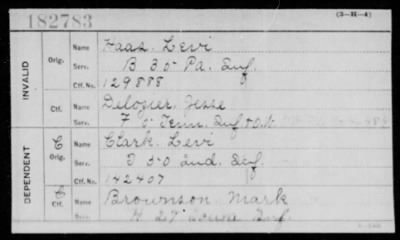 182783
(3-H-4)
Name Haas, Levi
INVALID
Orig. Serv. B 35 Pa. Inf.
Ctf. No. 129888
Name Delozier, Jesse
Ctf. Serv. F 5 Tenn. Inf
DEPENDENT
Name Clark, Levi
Orig. Serv. D 30 Ind. Inf.
Ctf. No. 142407
Name Brownson Mark
Ctf. Serv. H 27 Iowa Inf